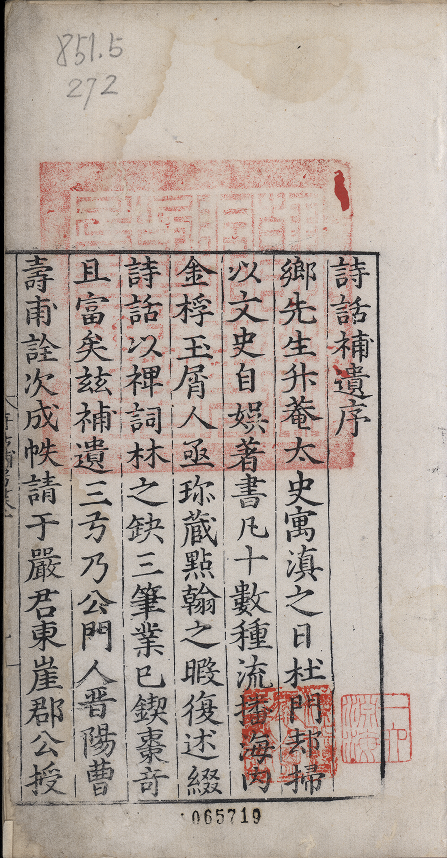 851.5
272
詩話補遺序
鄉先生升菴太史寓滇之日杜門却掃
以文史自娛著書凡十數種流播海內
金桴玉屑人亟珎藏點翰之暇復述綴
詩話以裨詞林之缺三筆業已鍥棗竒
且富矣茲補遺三㢧乃公門人晋陽曹
壽甫詮次成帙請于嚴君東崖郡公授
065719